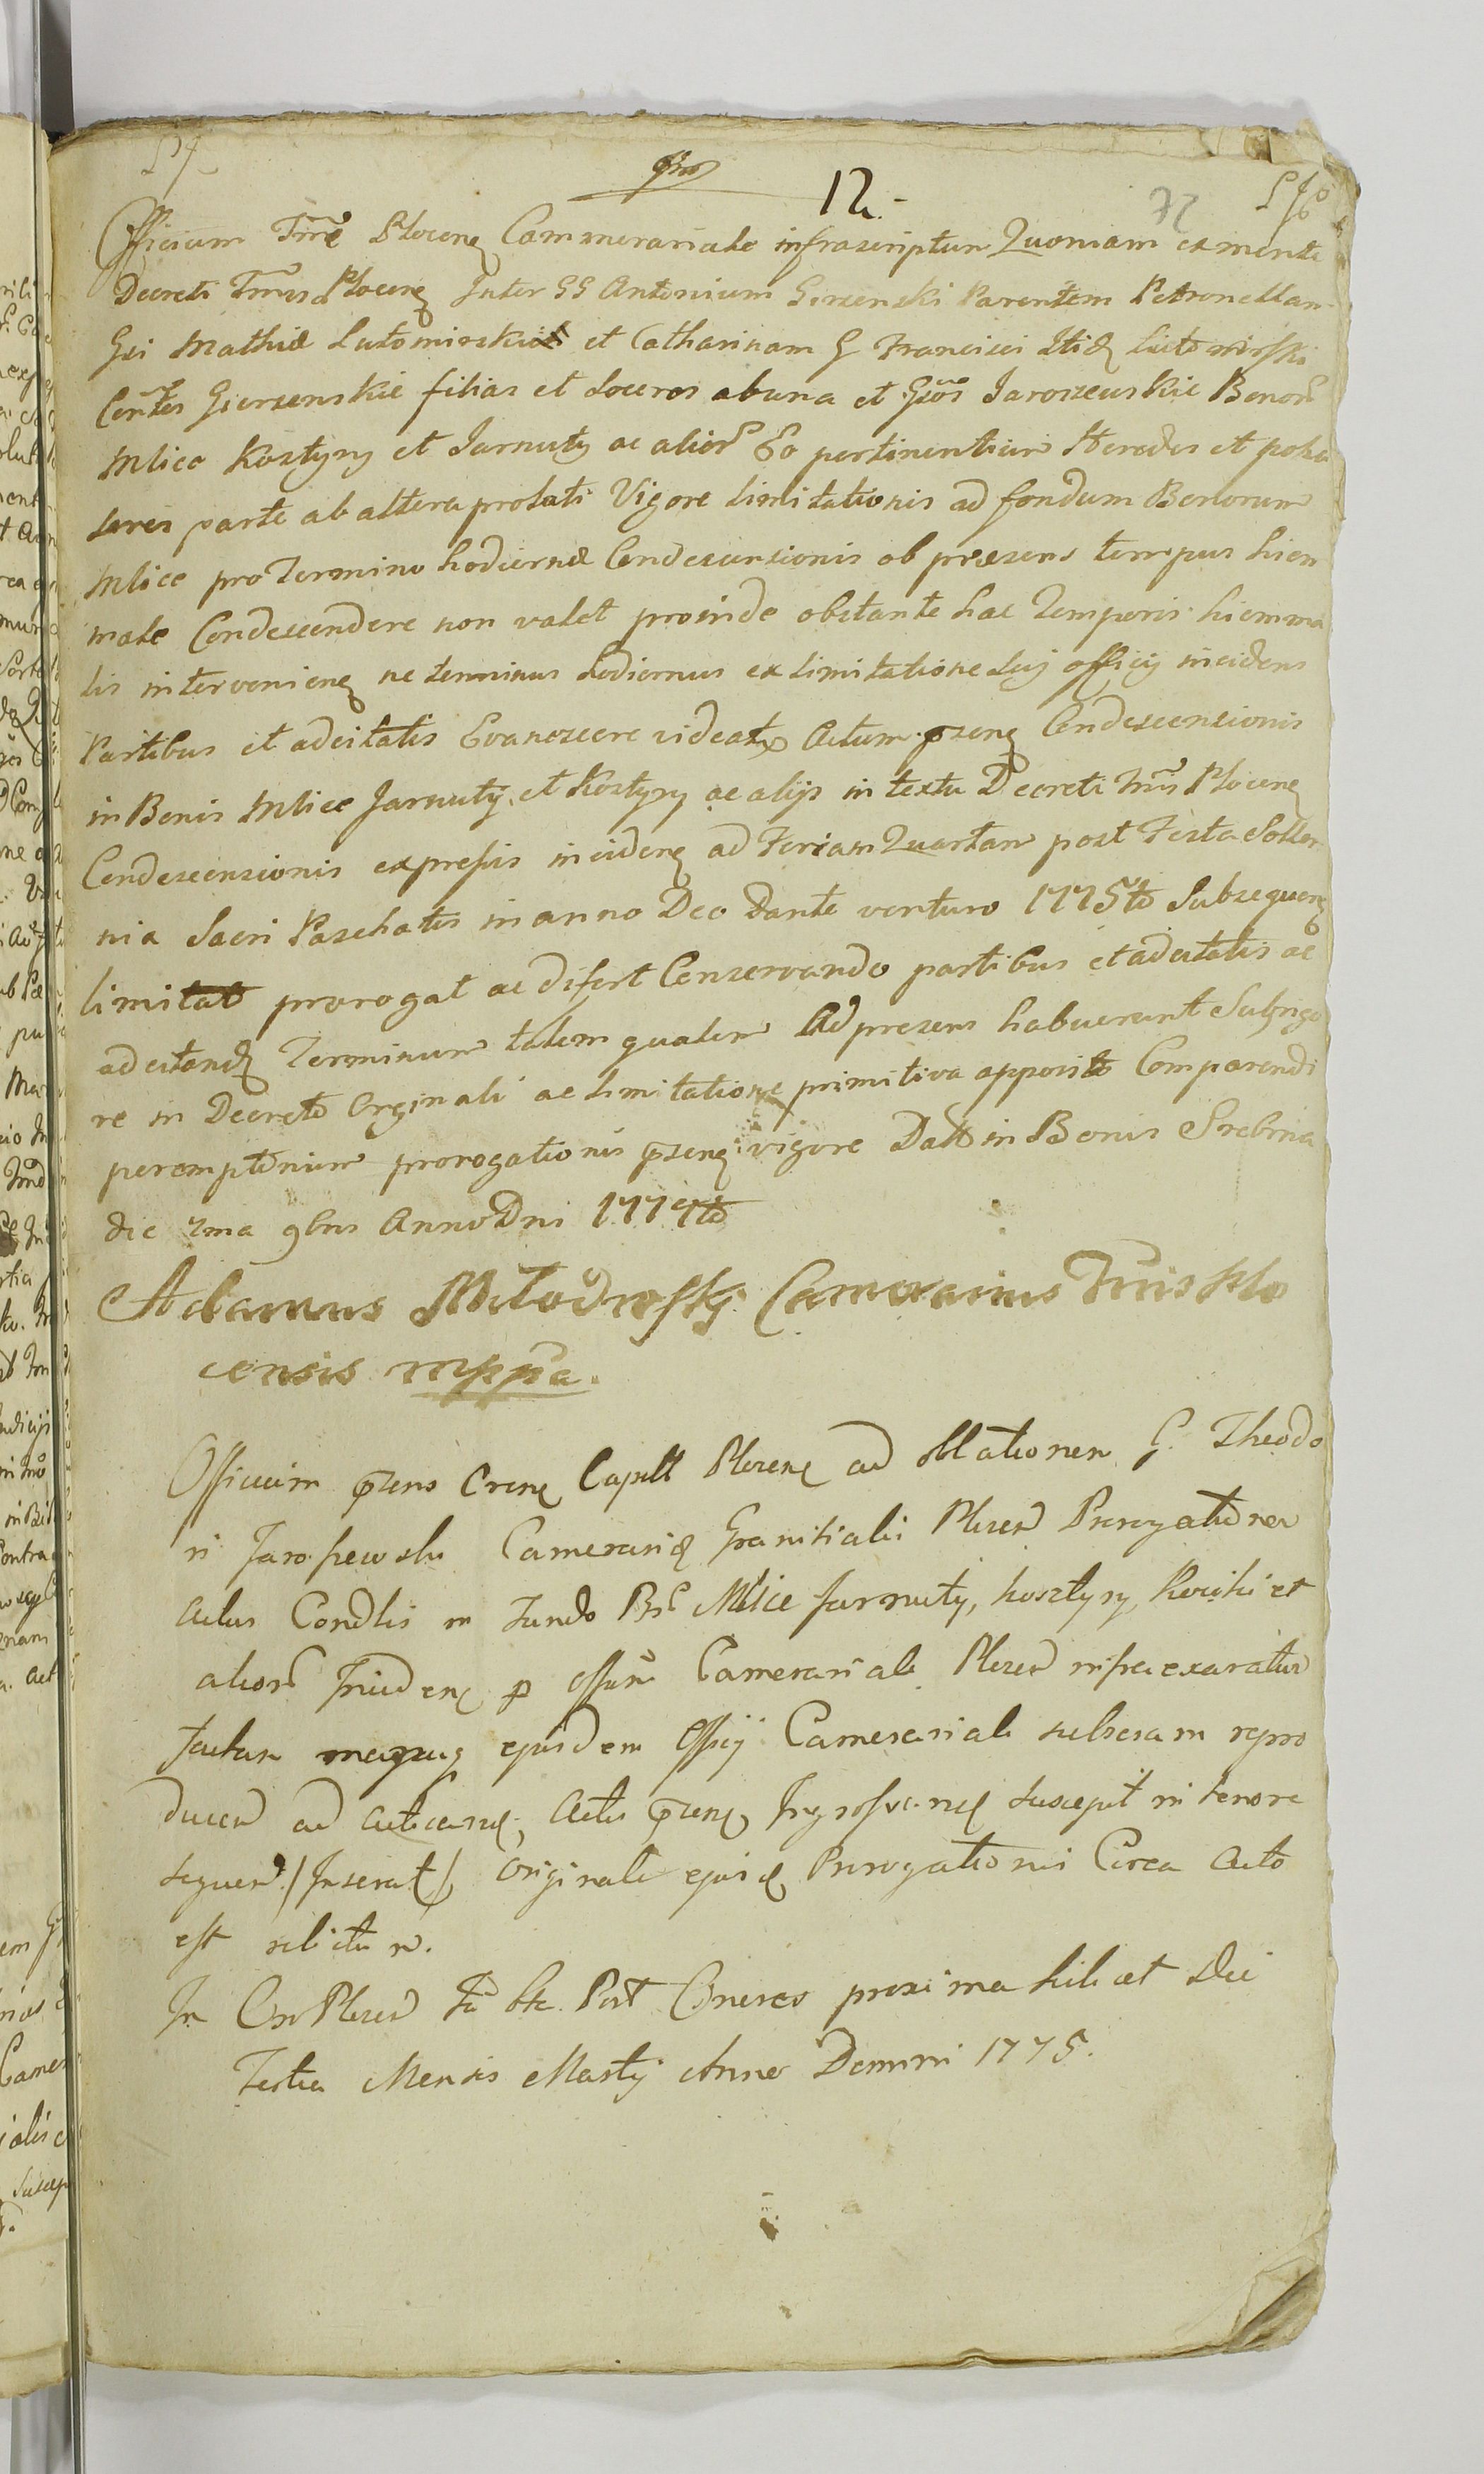 12.
Officium Trrē Plocenę Cammerariale infrascriptum Quoniam ex mente
Decreti Trris Plocenę Inter GG Antonium Gerzenski Parentem Petronellam
Gsi Mathiæ Lutomirski et Catharinam G Francisci Itidę Lutomirski
Conĩtes Gierzenskie filias et Soceros ab una et Gsōs Jaroszeuskie Bonoř
Mlice Kosztyry et Jarnuty ac alioř Eo pertinentium Heredes et posses
sores parte ab altera prolati Vigore Limitationis ad fondum Bonorum
Mlice pro Termino hodiernæ Condescensionis ob præsens tempus hiem
male Condescendere non valet proinde obstante hac Temporis hiemma
lis intervenienę ne terminus hodiernus ex limitatione sui officij incidens
Partibus et adcitatis Evanescere videatr Actum pzenę Condescensionis
in Bonis Mlice Jarnuty et Kosztyry ac alijs in textu Decreti Trris Plocenę
Condescensionis expressis incidenę ad Feriam Quartam post Festa Sollem
nia Sacri Paschatis in anno Deo Dante venturo 1775to Subsequenę
limitat prorogat ac difert Conservando partibus et adcitatis ac
adcitandę Terminum talem qualem Ad presens habuerunt Subrigo
re in Decreto Orginali ac limitatione primitiva apposito Comparendi
peremptorium prorogationis pzenę vigore Datt in Bonis Srebrna
die 7ma 9bris Anno Dni 1774to
Adamus Młodowsky Camerarius Trris Plo
censis mppa.
Officium pzens Crenę Capitł Plocenę ad oblationem G. Theodo
ri Jaroszewski Camerarię Granitialis Plocen Prorogationem
Actus Condlis in Fundo Bř Mlice Jarnuty, Kosztyry, et
alioř Incidenę p offum Camerariale Plocen infra exaratum
factam ejusdem Officij Camerarialis subscram repro
ducen ad acticandę, Actis pzenę Ingrossandę suscepit in tenore
sequen /Inserat/ originale ejusdę Prorogationis Circa Acto
est relictum.
In Cro Plocen Fa 6ta Post Cineres proxima sili et Die
Tertia Mensis Martij Anno Domini 1775.